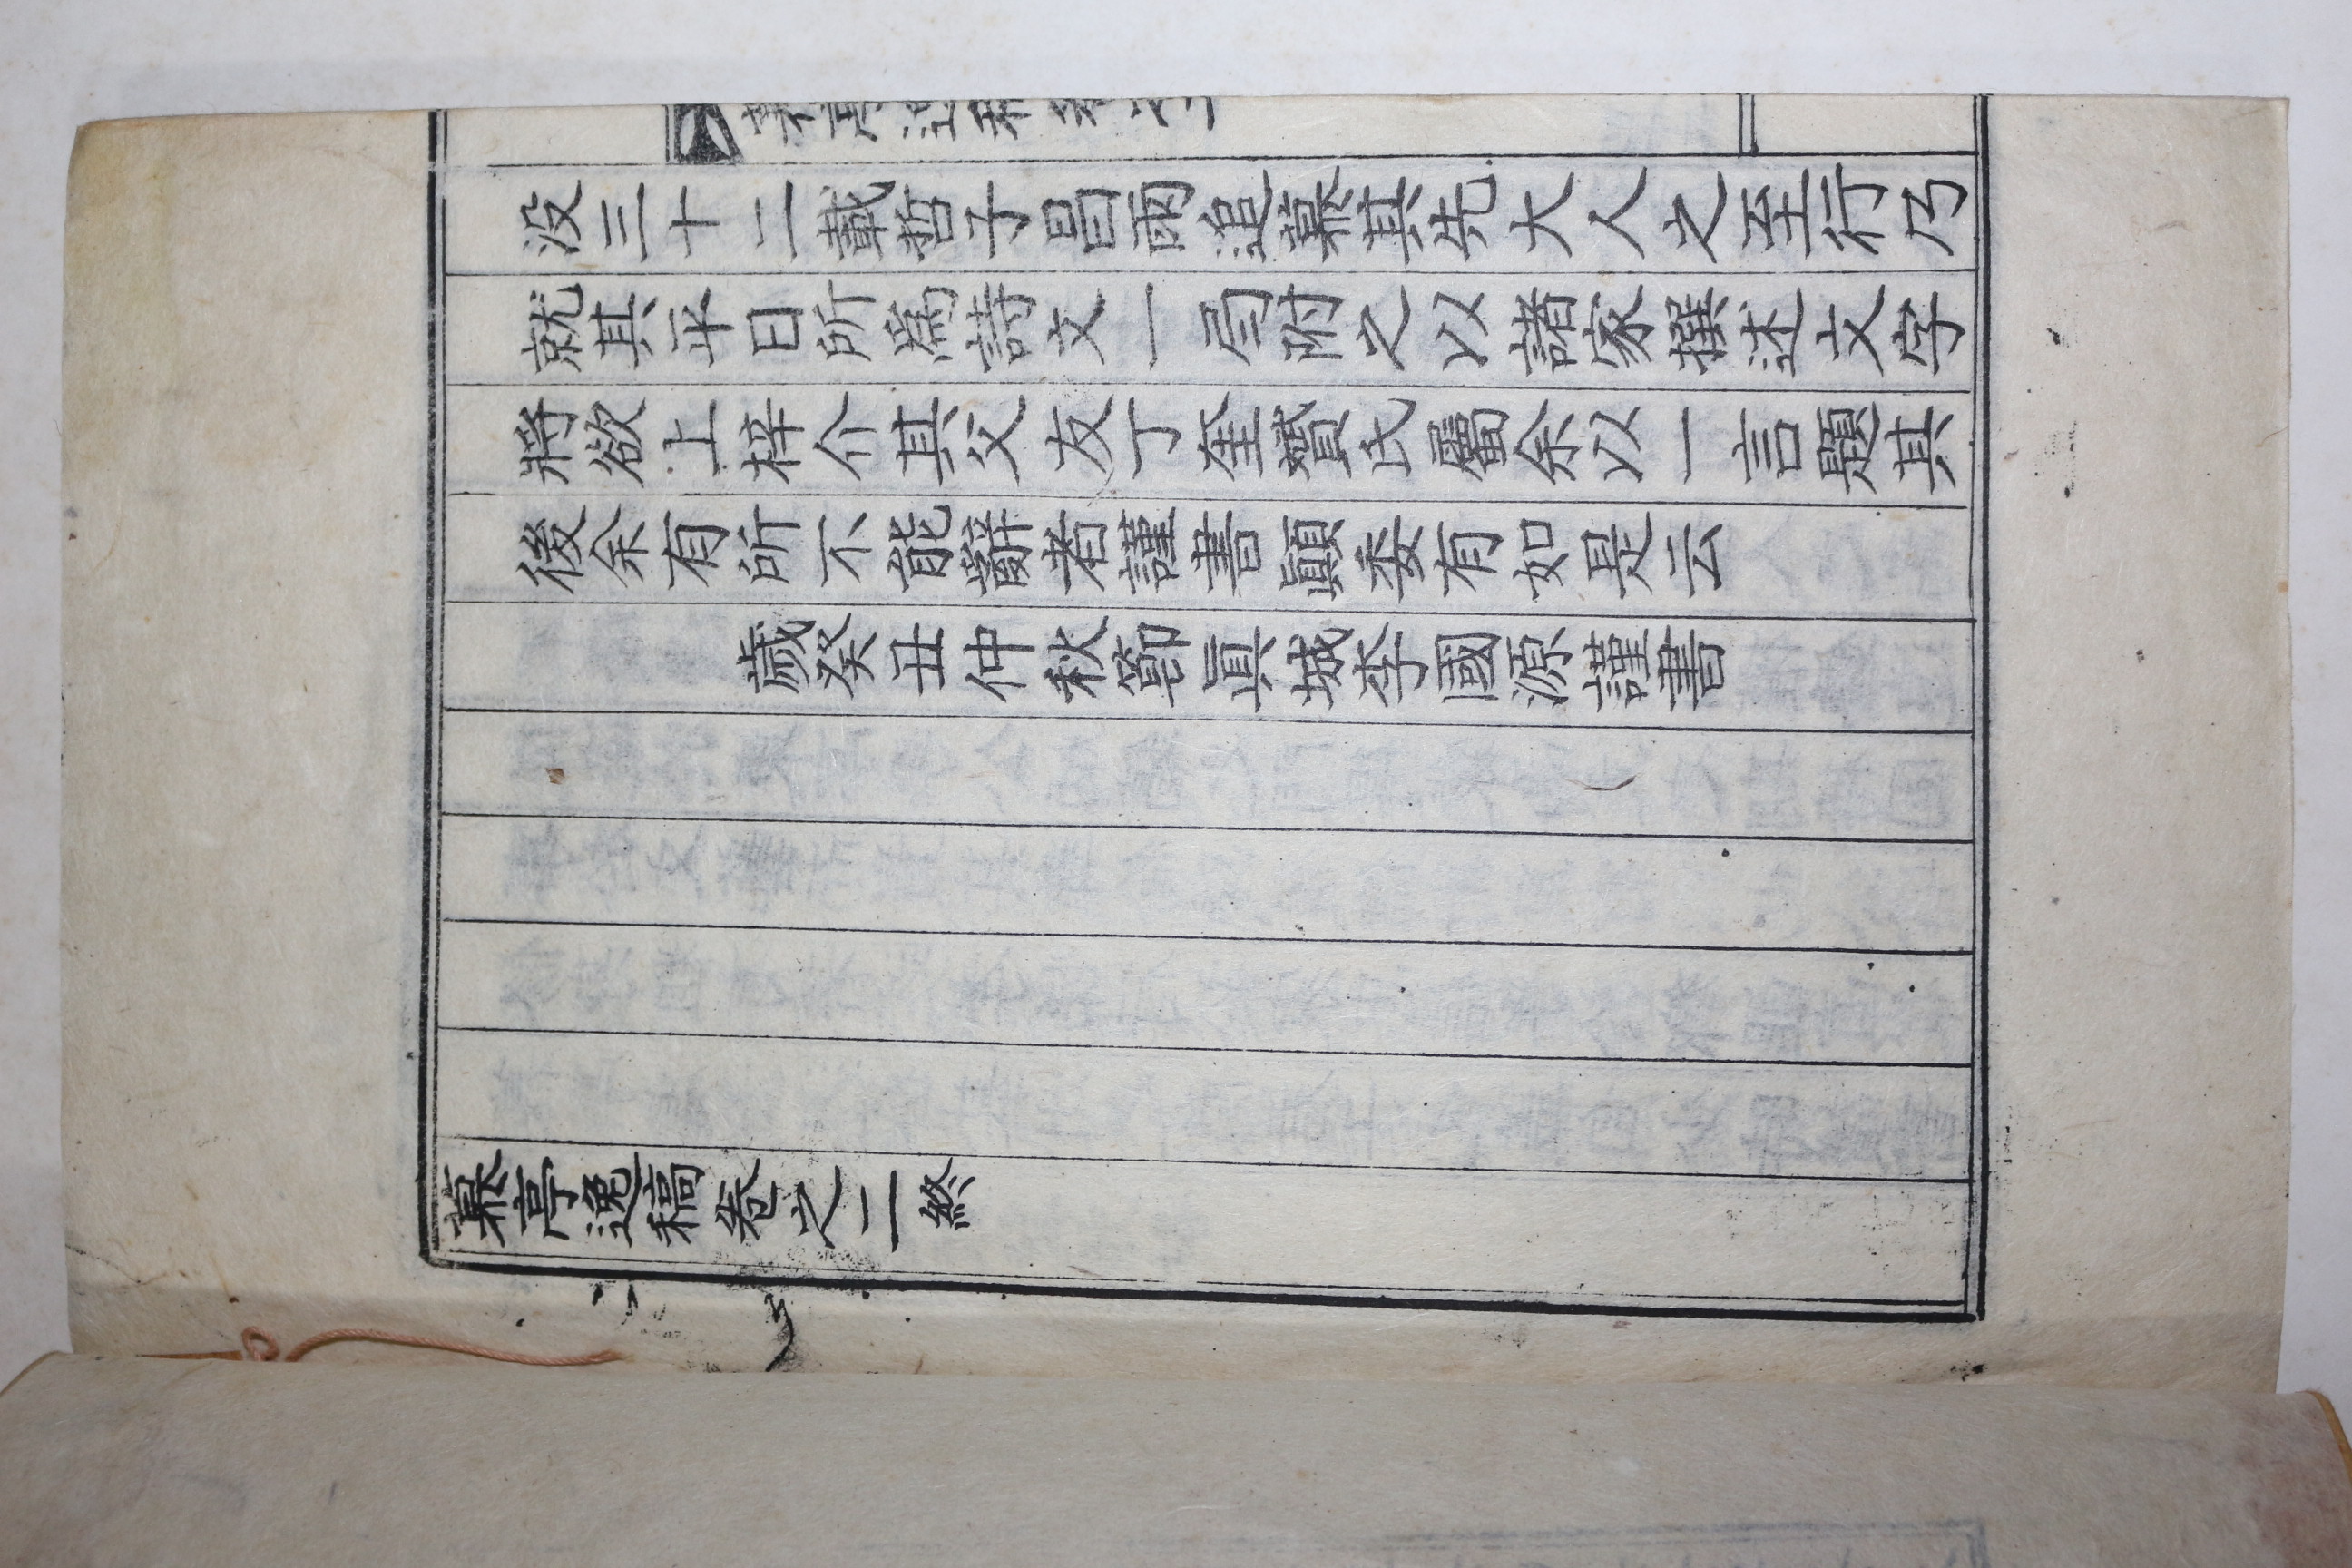 没三十二載哲子昌雨追慕其先大人之至行乃
就其平日所爲詩文一局附之以諸家撰述文字
將欲上梓介其父友丁奎贇氏屬余以一言題其
後余有所不能辭者謹書顚委有如是云
歲癸丑仲秋節眞城李國源謹書
慕亭逸稿卷之二終